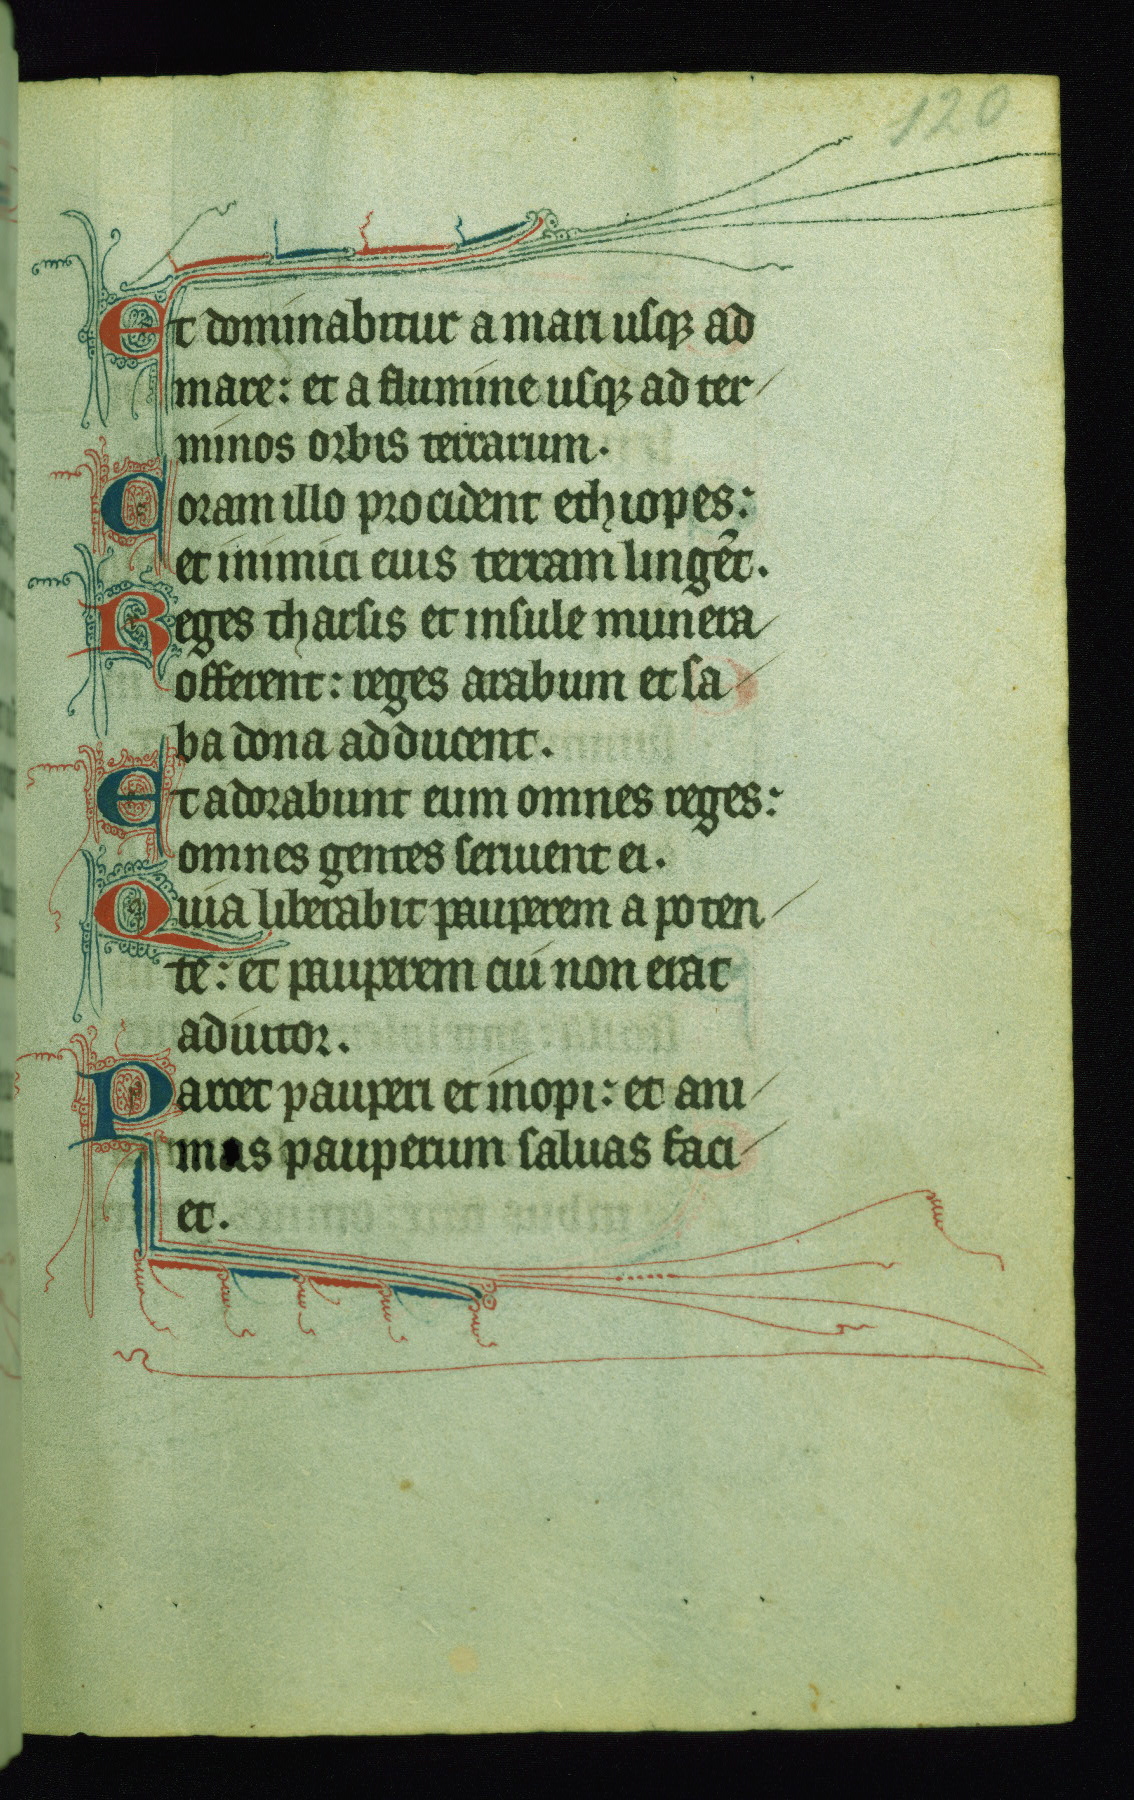 120
Et dominabitur a mari usqꝫ ad
mare: et a flumine usqꝫ ad ter
minos orbis terrarum.
Coram illo procident ethiopes:
et inimici eius terram lingēt.
Reges tharsis et insule munera
offerent: reges arabum et sa
ba dona adducent.
Et adorabunt eum omnes reges:
omnes gentes seruient ei.
Quia liberabit pauperem a poten
te: et pauperem cui non erat
adiutor.
Parcet pauperi et inopi: et ani
mas pauperum saluas faci
et.